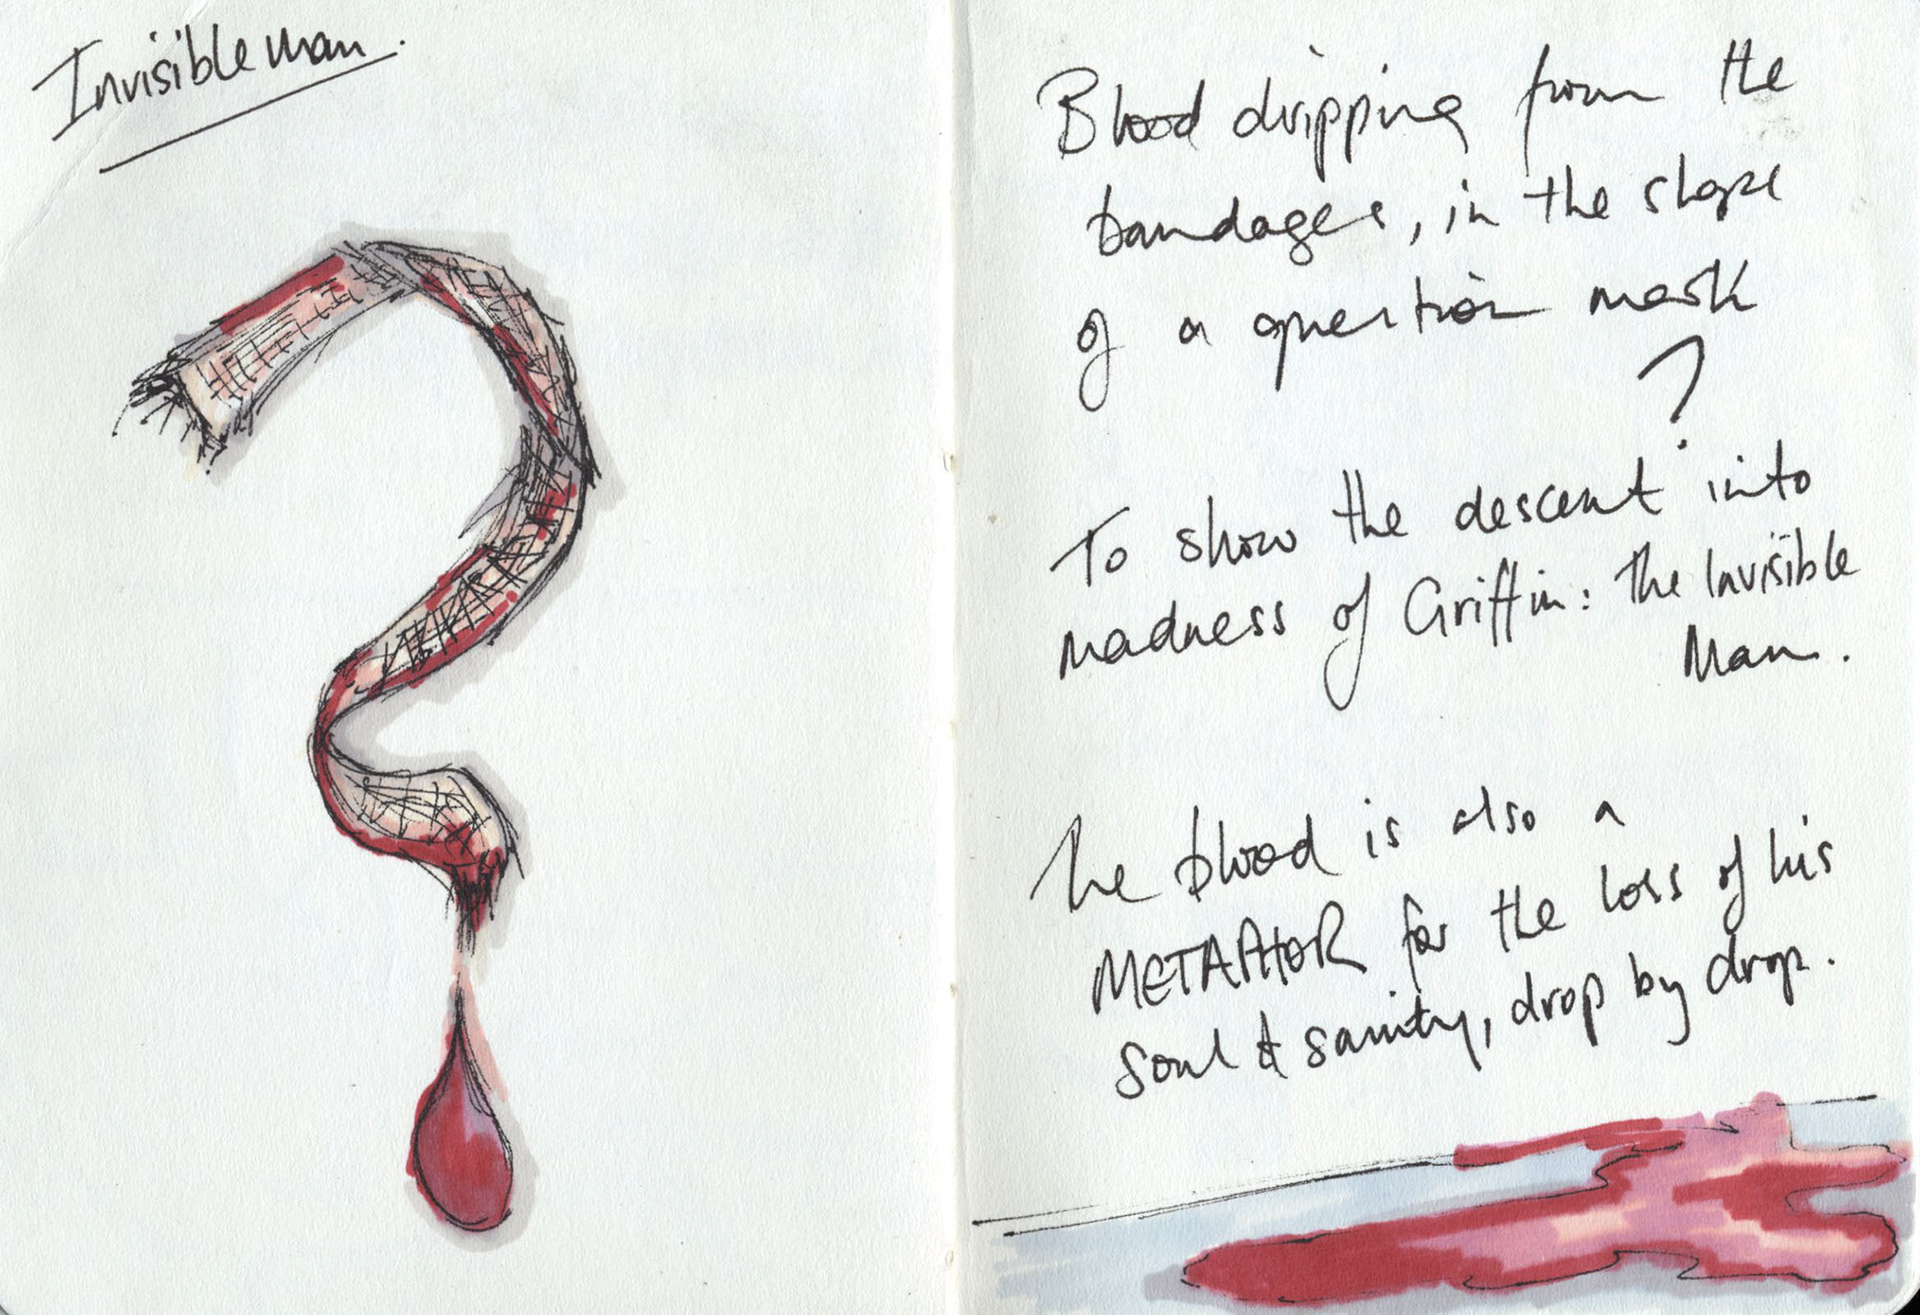 Invisible man.
Blood dripping from the
bandages, in the shape
of a question mark
?
To show the descent into
madness of Griffin: The Invisible
Man.
The blood is also a
METAPHOR for the loss of his
soul & sanity, drop by drop.